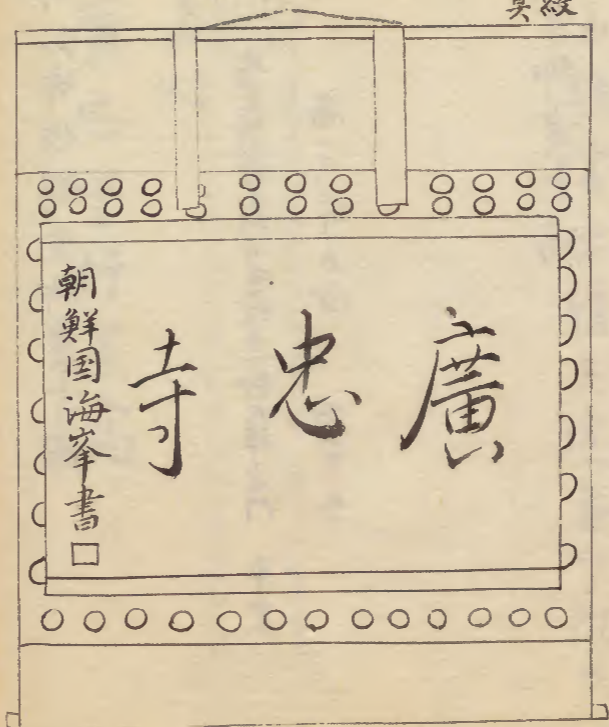 廣忠寺
朝鮮国海峯書